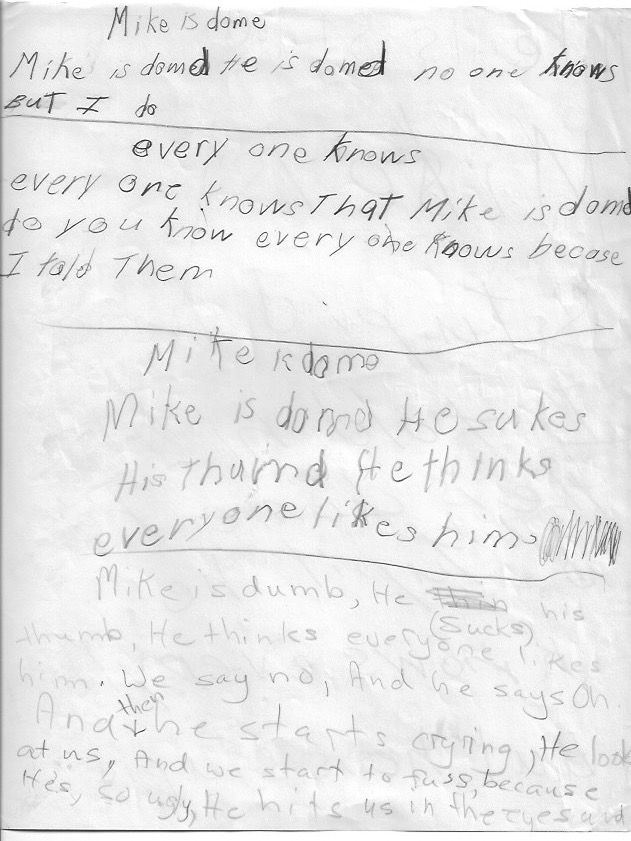 Mike is dome
Mike is domd He is domed no one knows
BuT I do
every one knows
every one knows That Mike is domd
do you know every one knows becase
I told Them
Mike is domo
Mike is domd He sukes
His Thumd He thinks
everyone likes him
Mike is dumb, He his
(Sucks)
thumb, He thinks everyone likes
him. We say no, And he says Oh.
then
And he starts crying, He look
at us, And we start to fuss, because
He's, so ugly, He hits us in the eyes and